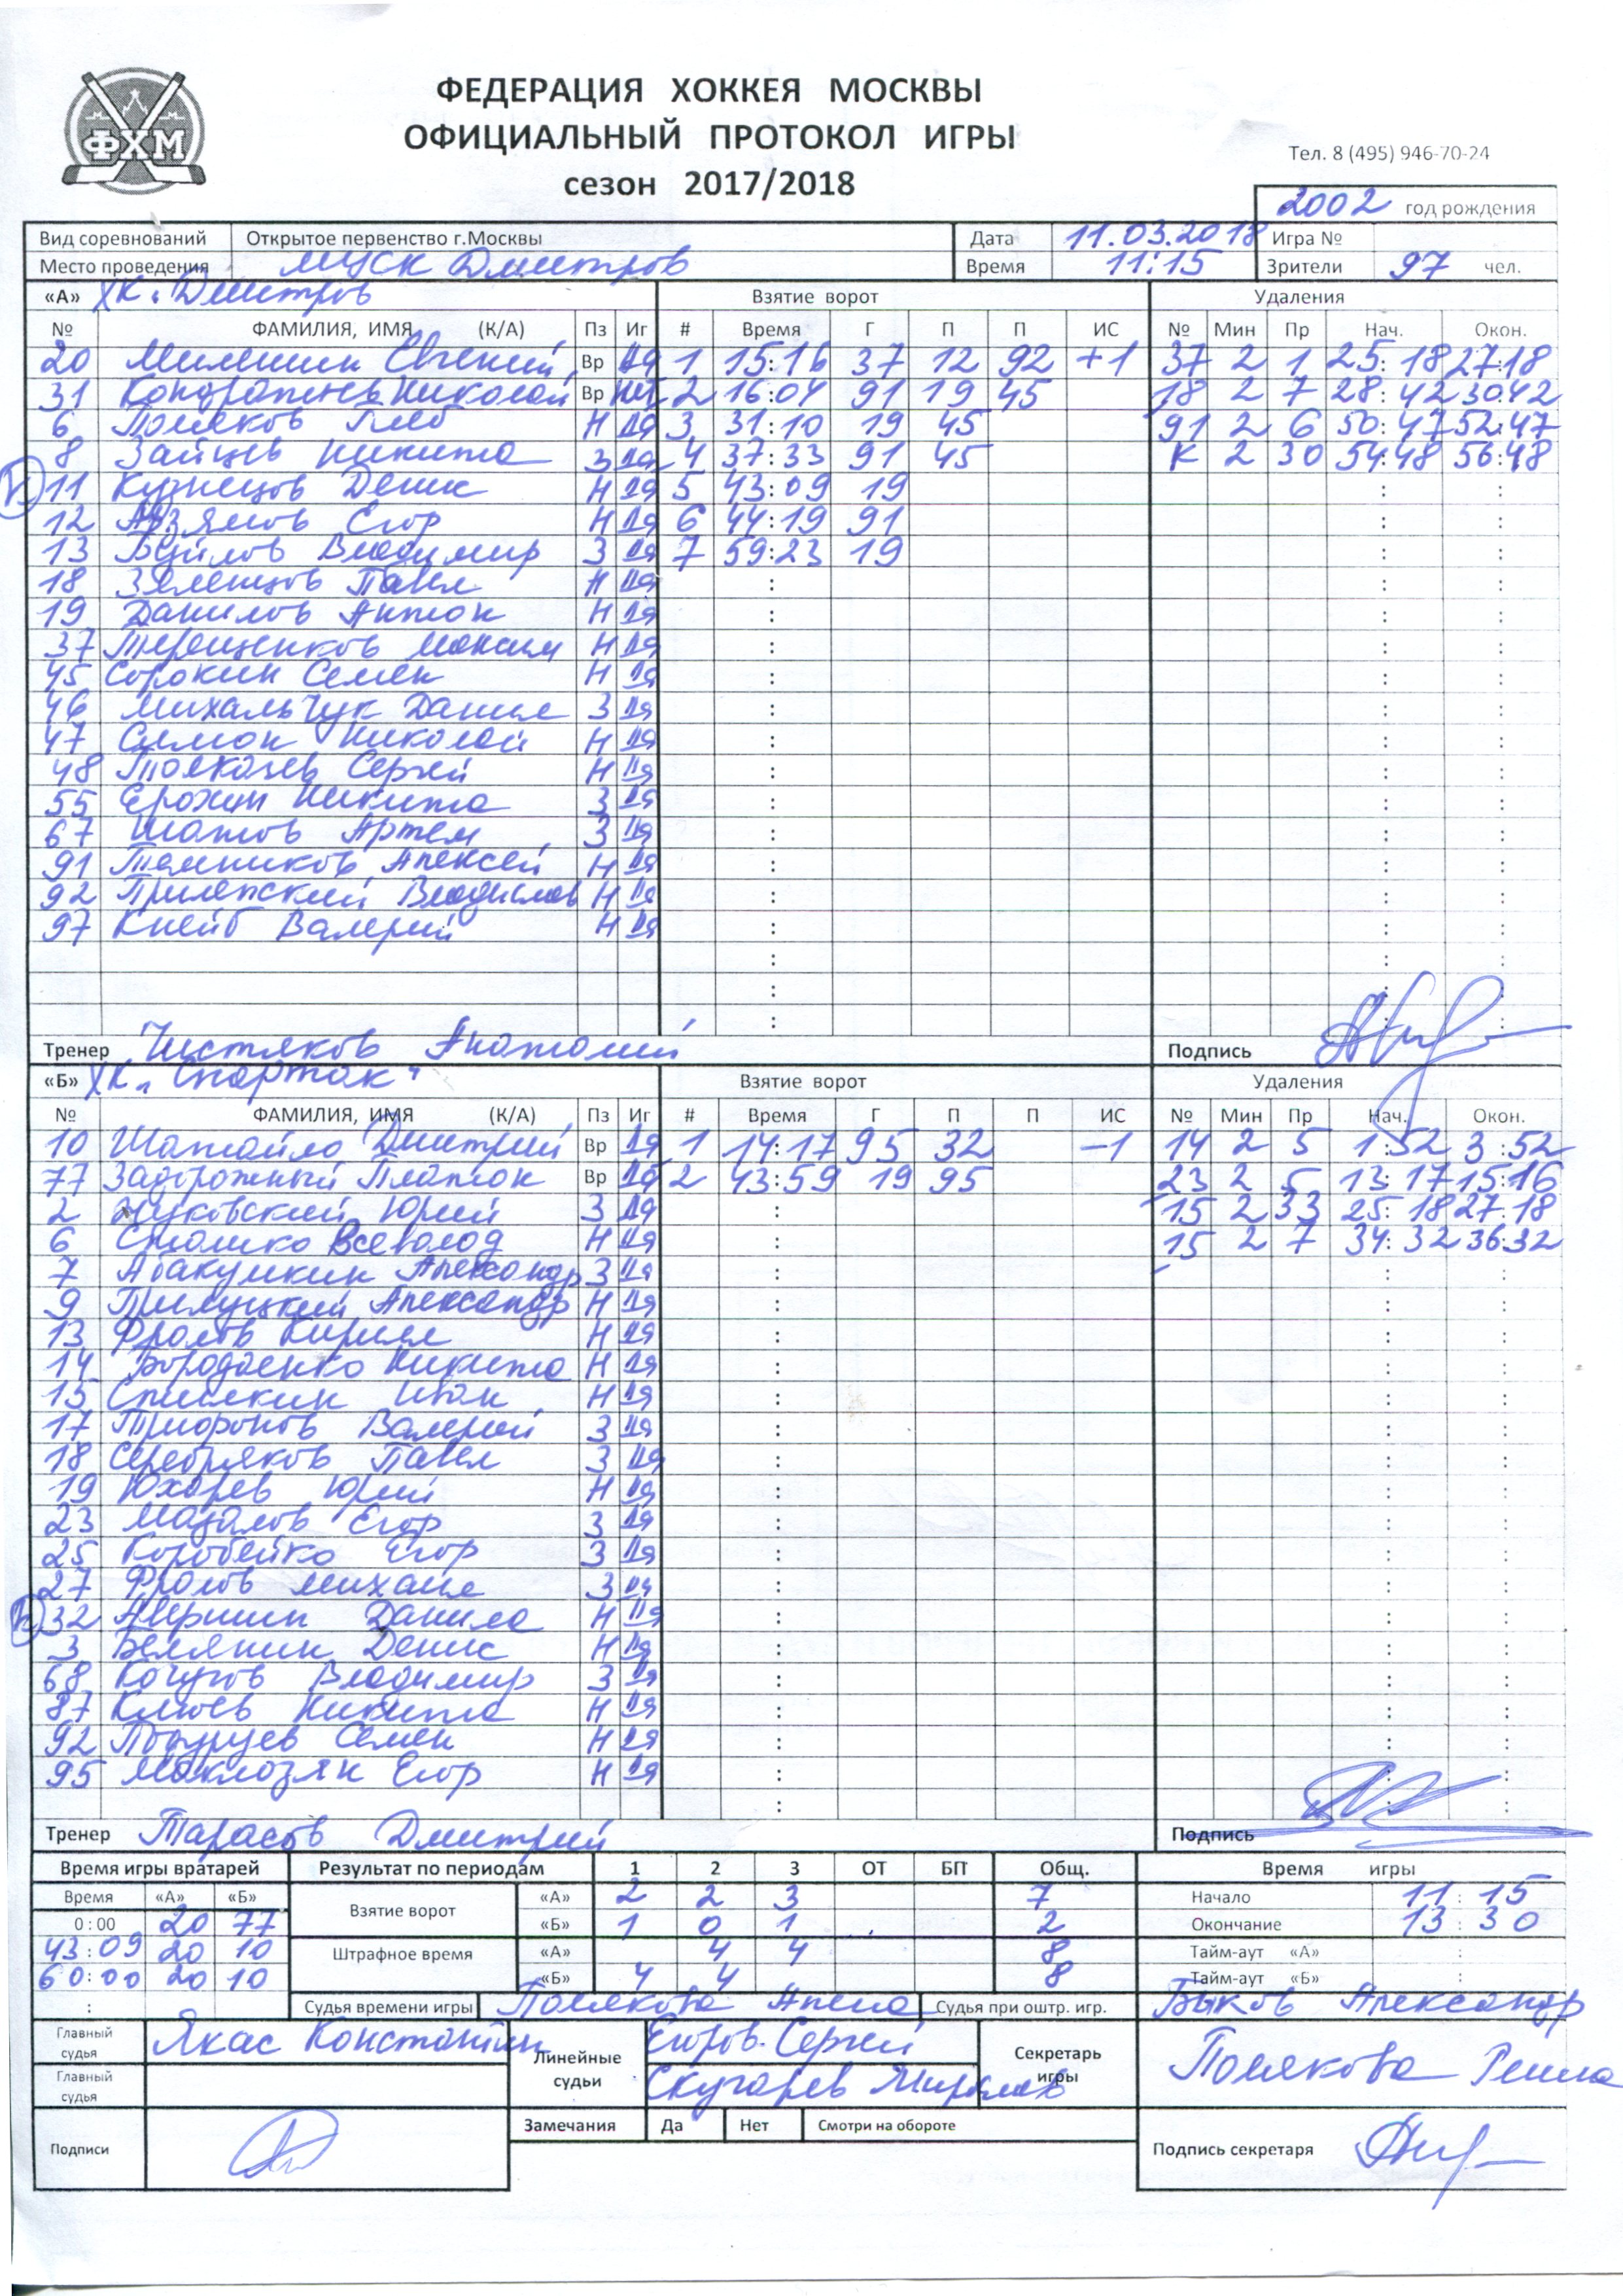 ФЕДЕРАЦИЯ ХОККЕЯ МОСКВЫ
ОФИЦИАЛЬНЫЙ ПРОТОКОЛ ИГРЫ
сезон 2017/2018
ФХМ
Тел. 8 (495) 946-70-24
2002 год рождения
Вид соревнований Открытое первенство г.Москвы Дата 11.03.2018 Игра №
Место проведения МУСК Дмитров Время 11:15 Зрители 97 чел.
«А» ХК "Дмитров Взятие ворот Удаления
№ ФАМИЛИЯ, ИМЯ (К/А) Пз Иг # Время Г П П ИС № Мин Пр Нач. Окон.
20 Милешин Евгений Вр да 1 15:16 37 12 92 +1 37 2 1 25:18 27:18
31 Кондратьев Николай Вр нет 2 16:04 91 19 45 18 2 7 28:42 30:42
6 Поляков Глеб Н да 3 31:10 19 45 91 2 6 50:47 52:47
8 Зайцев Никита З да 4 37:33 91 45 К 2 30 54:48 56:48
К 11 Кузнецов Денис Н да 5 43:09 19
12 Егор Н да 6 44:19 91
13 Владимир З да 7 59:23 19
18 Зеленцов Павел Н да
19 Данилов Антон Н да
37 Терещенков Максим Н да
45 Сорокин Семен Н да
46 Михальчук Данил З да
47 Симон Николай Н да
48 Толкачев Сергей Н да
55 Ерохин Никита З да
67 Шатов Артем З да
91 Темников Алексей Н да
92 Прилепский Владислав Н да
97 Кнейб Валерий Н да
Тренер Чистяков Анатолий Подпись
«Б» ХК "Спартак" Взятие ворот Удаления
№ ФАМИЛИЯ, ИМЯ (К/А) Пз Иг # Время Г П П ИС № Мин Пр Нач. Окон.
10 Шатайло Дмитрий Вр да 1 14:17 95 32 -1 14 2 5 1:52 3:52
77 Задорожный Платон Вр да 2 43:59 19 95 23 2 5 13:17 15:16
2 Жуковский Юрий З да 15 2 33 25:18 27:18
6 Всеволод Н да 15 2 7 34:32 36:32
7 Абакумкин Александр З да
9 Пилуцкий Александр Н да
13 Фролов Кирилл Н да
14 Бородаенко Никита Н да
15 Иван Н да
17 Валерий З да
18 Серебряков Павел З да
19 Юхарев Юрий Н да
23 Мазалов Егор З да
25 Коробейко Егор З да
27 Фролов Михаил З да
К 32 Авершин Данила Н да
3 Белянин Денис Н да
68 Кочугов Владимир З да
87 Клюев Никита Н да
92 Семен Н да
95 Маклозян Егор Н да
Тренер Тарасов Дмитрий Подпись
Время игры вратарей Результат по периодам 1 2 3 ОТ БП Общ. Время игры
Время «А» «Б» Взятие ворот «А» 2 2 3 7 Начало 11:15
0:00 20 77 «Б» 1 0 1 2 Окончание 13:30
43:09 20 10 Штрафное время «А» 4 4 8 Тайм-аут «А» :
60:00 20 10 «Б» 4 4 8 Тайм-аут «Б» :
: Судья времени игры Полякова Алена Судья при оштр. игр. Быков Александр
Главный судья Якас Константин Линейные судьи Егоров Сергей Секретарь игры Полякова Римма
Главный судья Скугарев Мирослав
Замечания Да Нет Смотри на обороте
Подписи Подпись секретаря